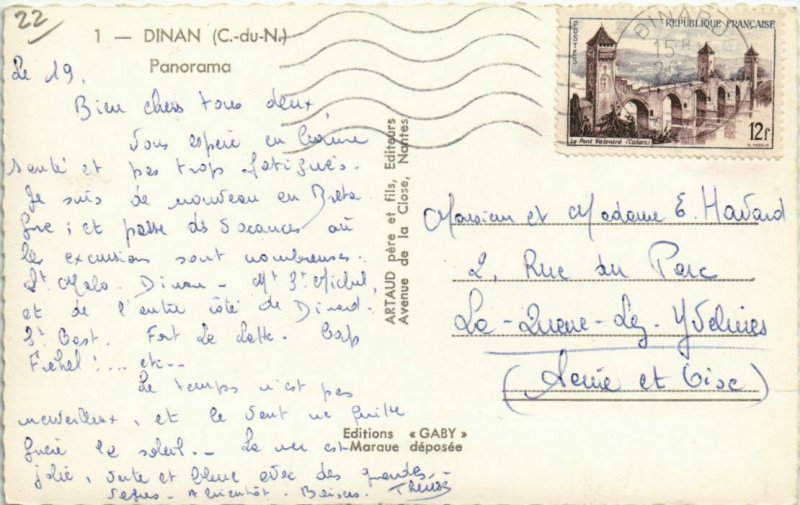 22
1 — DINAN (C.-du-N.)
Panorama
Le 19,
Bien chers tous deux,
Vous espère en bonne
santé et pas trop fatigués.
Je suis de nouveau en Breta
gne ; et passe des vacances où
les excursions sont nombreuses.
St Malo. Dinan - Mt St Michel,
et de l'autre côté de Dinard.
St Cast. Fort La Latte. Cap
Frehel !... etc--
Le temps n'est pas
merveilleux, et le vent ne quitte
guère le soleil. - La mer est
jolie, verte et bleue avec des grandes
vagues - A bientôt. Baisers.
ARTAUD père et fils, Editeurs
Avenue de la Close, Nantes
Editions « GABY »
Marque déposée
DINARD
15 H
POSTES
REPUBLIQUE FRANÇAISE
Le Pont Valentré (Cahors)
12f
Monsieur et Madame E. Havard
2, Rue du Parc
La-Queue-Lez-Yvelines
(Seine et Oise)